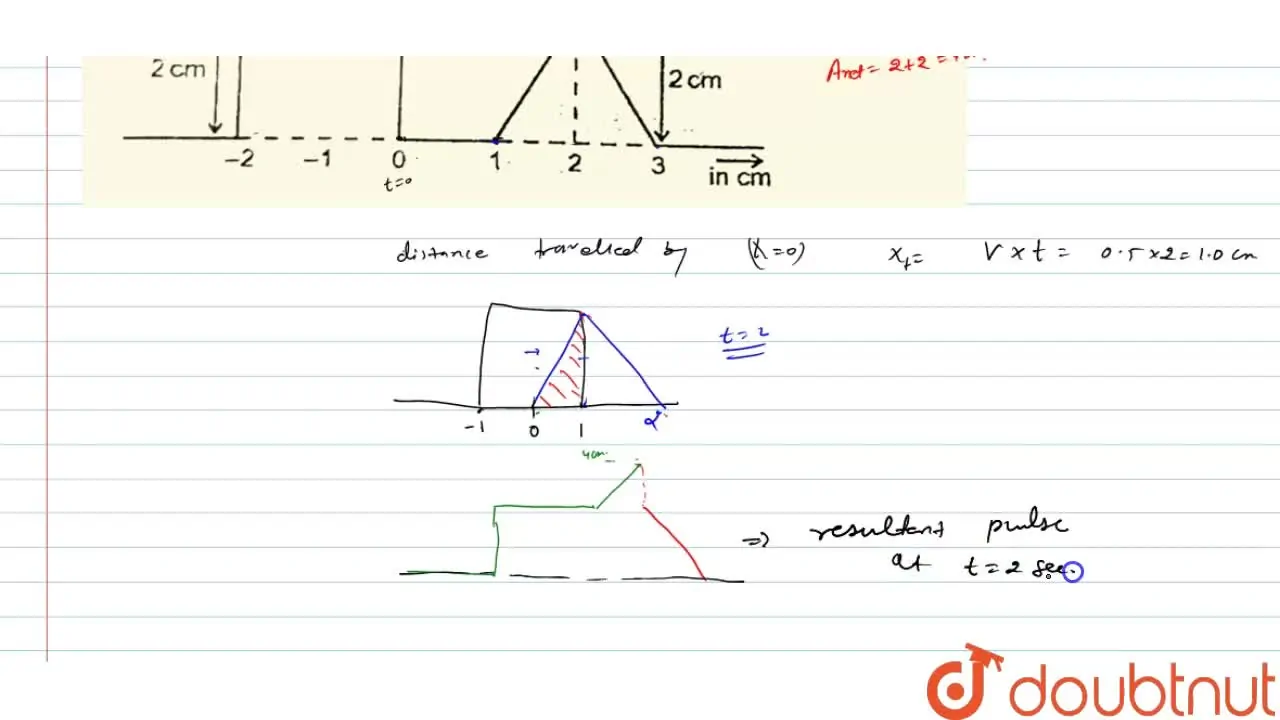 2 cm
2 cm
Anet = 2+2 =
-2 -1 0 1 2 3
in cm
t=0
distance travelled by (x=0) xt = V x t = 0.5 x 2 = 1.0 cm
t = 2
-1 0 1 2
4cm
=> resultant pulse
at t = 2 sec.
doubtnut